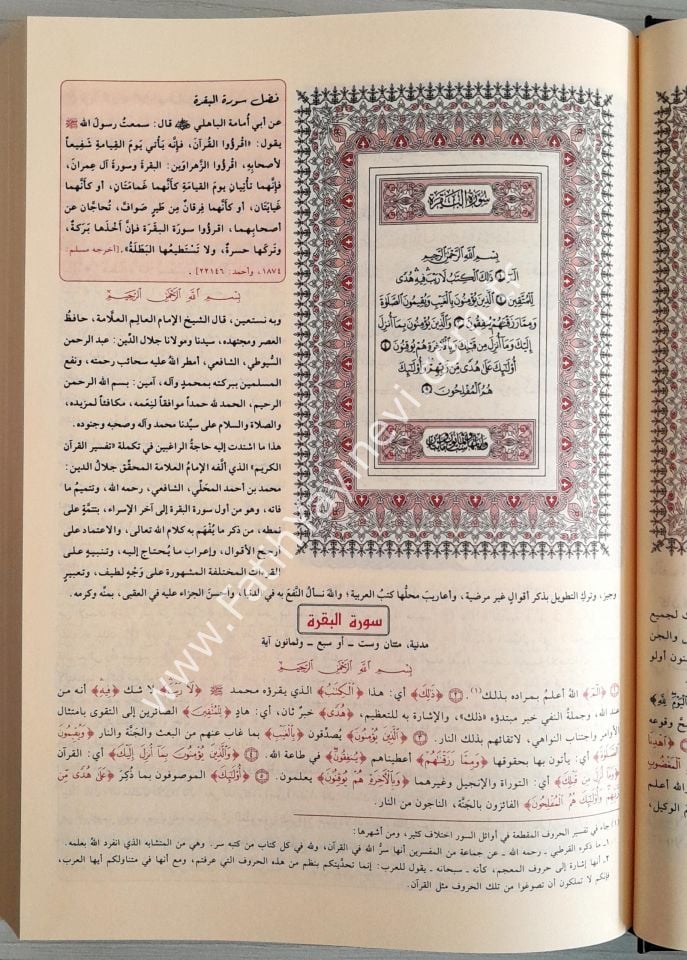 فضل سورة البقرة
عن أبي أمامة الباهلي ﷺ قال: سمعتُ رسولَ الله ﷺ
يقول: «اقْرَؤوا القُرآنَ، فإنَّه يأتي يَومَ القِيامةِ شَفيعاً
لأصحابِهِ، اقْرَؤوا الزَّهراوَين: البقرةَ وسورةَ آلِ عِمرانَ،
فإنَّهما تأتِيانِ يومَ القيامَةِ كأنَّهما غَمامَتَانِ، أو كأنَّهما
غَيَايَتَان، أو كأنَّهما فِرقَانِ مِن طَيرٍ صَوافَّ، تُحاجَّان عن
أصحابِهِما، اقرؤوا سورَةَ البقَرَة فإنَّ أخْذَها بَرَكةٌ،
وتَركَها حسرةٌ، ولا تَسْتطيعُها البَطَلَةُ». [أخرجه مسلم:
١٨٧٤، وأحمد: ٢٢١٤٦].
بِسْمِ اللَّهِ الرَّحْمَٰنِ الرَّحِيمِ
وبه نستعين، قال الشيخ الإمام العالِم العلّامة، حافظُ
العصر ومجتهده، سيدنا ومولانا جلال الدِّين: عبد الرحمن
السُّيوطي، الشافعي، أمطرَ اللهُ عليه سحائب رحمته، ونفع
المسلمين ببركته بمحمدٍ وآله، آمين: بسم الله الرحمن
الرحيم، الحمد لله حمداً موافقاً لنِعَمه، مكافئاً لمزيده،
والصلاة والسلام على سيِّدنا محمد وآله وصحبه وجنوده.
هذا ما اشتدت إليه حاجةُ الراغبين في تكملة «تفسير القرآن
الكريم» الذي ألّفه الإمام العلامة المحقّق جلالُ الدين:
محمد بن أحمد المحَلِّي، الشافعي، رحمه الله، وتتميم ما
فاته، وهو من أول سورة البقرة إلى آخر الإسراء، بتتمَّةٍ على
نمطه، من ذكر ما يُفْهَم به كلام الله تعالى، والاعتماد على
أرجح الأقوال، وإعراب ما يُحتاج إليه، وتنبيهٍ على
القراءات المختلفة المشهورة على وَجْهٍ لطيف، وتعبيرٍ
سُورَةُ البَقَرَةِ
بِسْمِ اللَّهِ الرَّحْمَٰنِ الرَّحِيمِ
الٓمٓ ١ ذَٰلِكَ الْكِتَٰبُ لَا رَيْبَ فِيهِ هُدًى
لِّلْمُتَّقِينَ ٢ الَّذِينَ يُؤْمِنُونَ بِالْغَيْبِ وَيُقِيمُونَ الصَّلَوٰةَ
وَمِمَّا رَزَقْنَٰهُمْ يُنفِقُونَ ٣ وَالَّذِينَ يُؤْمِنُونَ بِمَا أُنزِلَ
إِلَيْكَ وَمَا أُنزِلَ مِن قَبْلِكَ وَبِالْآخِرَةِ هُمْ يُوقِنُونَ ٤
أُولَٰئِكَ عَلَىٰ هُدًى مِّن رَّبِّهِمْ وَأُولَٰئِكَ
هُمُ الْمُفْلِحُونَ ٥
وجيز، وتركِ التطويل بذكر أقوالٍ غير مرضية، وأعاريبَ محلُّها كتبُ العربية؛ واللهَ نسألُ النَّفعَ به في الدنيا، وأحسنَ الجزاء عليه في العقبى، بمنِّه وكرمه.
سورة البقرة
مدنية، مئتان وست ـ أو سبع ـ وثمانون آية
بِسْمِ اللَّهِ الرَّحْمَٰنِ الرَّحِيمِ
١ ﴿الٓمٓ﴾ اللهُ أعلمُ بمراده بذلك(١). ٢ ﴿ذَٰلِكَ﴾ أي: هذا ﴿الْكِتَٰبُ﴾ الذي يقرؤه محمد ﷺ ﴿لَا رَيْبَ﴾ لا شك ﴿فِيهِ﴾ أنه من
عند الله، وجملةُ النفي خبر مبتدؤه «ذلك»، والإشارة به للتعظيم، ﴿هُدًى﴾ خبرٌ ثان، أي: هادٍ ﴿لِّلْمُتَّقِينَ﴾ الصائرين إلى التقوى بامتثال
الأوامر واجتناب النواهي، لاتقائهم بذلك النار. ٣ ﴿الَّذِينَ يُؤْمِنُونَ﴾ يُصدِّقون ﴿بِالْغَيْبِ﴾ بما غاب عنهم من البعث والجنَّة والنار ﴿وَيُقِيمُونَ
الصَّلَوٰةَ﴾ أي: يأتون بها بحقوقها ﴿وَمِمَّا رَزَقْنَٰهُمْ﴾ أعطيناهم ﴿يُنفِقُونَ﴾ في طاعة الله. ٤ ﴿وَالَّذِينَ يُؤْمِنُونَ بِمَا أُنزِلَ إِلَيْكَ﴾ أي: القرآن
﴿وَمَا أُنزِلَ مِن قَبْلِكَ﴾ أي: التوراة والإنجيل وغيرهما ﴿وَبِالْآخِرَةِ هُمْ يُوقِنُونَ﴾ يعلمون. ٥ ﴿أُولَٰئِكَ﴾ الموصوفون بما ذُكِرَ ﴿عَلَىٰ هُدًى مِّن
رَّبِّهِمْ وَأُولَٰئِكَ هُمُ الْمُفْلِحُونَ﴾ الفائزون بالجنَّة، الناجون من النار.
(١) جاء في تفسير الحروف المقطعة في أوائل السور اختلاف كثير، ومن أشهرها:
١ـ ما ذكره القرطبي ـ رحمه الله ـ عن جماعة من المفسرين أنها سرُّ الله في القرآن، ولله في كل كتاب من كتبه سر. وهي من المتشابه الذي انفرد الله بعلمه.
٢ـ أنها إشارة إلى حروف المعجم، كأنه ـ سبحانه ـ يقول للعرب: إنما تحدَّيتكم بنظم من هذه الحروف التي عرفتم، ومع أنها في متناولكم أيها العرب،
فإنكم لا تملكون أن تصوغوا من تلك الحروف مثل القرآن.